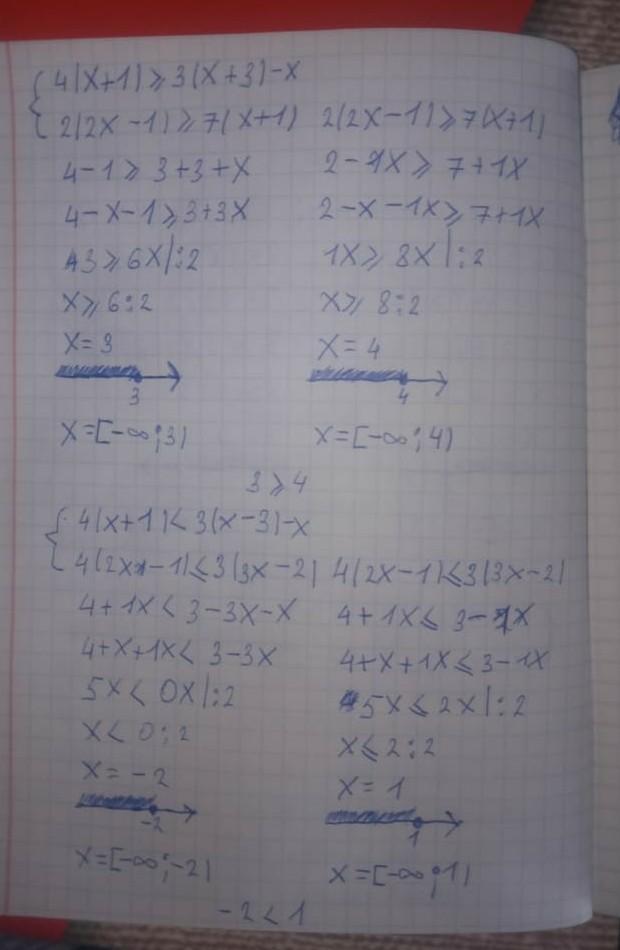 { 4(x+1) ≥ 3(x+3)-x
2(2x-1) ≥ 7(x+1) 2(2x-1) ≥ 7(x+1)
4-1 ≥ 3+3+x 2-1x ≥ 7+1x
4-x-1 ≥ 3+3x 2-x-1x ≥ 7+1x
3 ≥ 6x|:2 1x ≥ 8x|:2
x ≥ 6:2 x ≥ 8:2
x = 3 x = 4
3 4
x=[-∞;3) x=[-∞;4)
3 ≥ 4
{ 4(x+1) < 3(x-3)-x
4(2x-1) ≤ 3(3x-2) 4(2x-1) ≤ 3(3x-2)
4+1x < 3-3x-x 4+1x ≤ 3-1x
4+x+1x < 3-3x 4+x+1x ≤ 3-1x
5x < 0x|:2 5x ≤ 2x|:2
x < 0:2 x ≤ 2:2
x = -2 x = 1
-2 1
x=[-∞;-2) x=[-∞;1)
-2 < 1